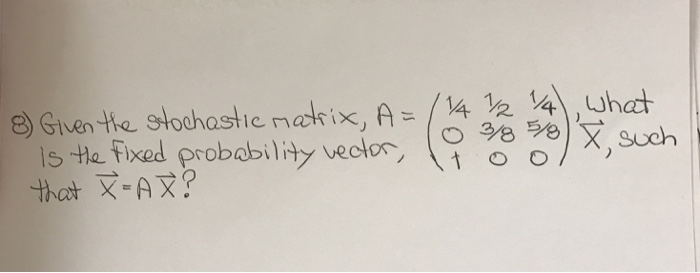 8) Given the stochastic matrix, A = (1/4 1/2 1/4), what
is the fixed probability vector, (0 3/8 5/8) X⃗, such
that X⃗ = A X⃗? (1 0 0)